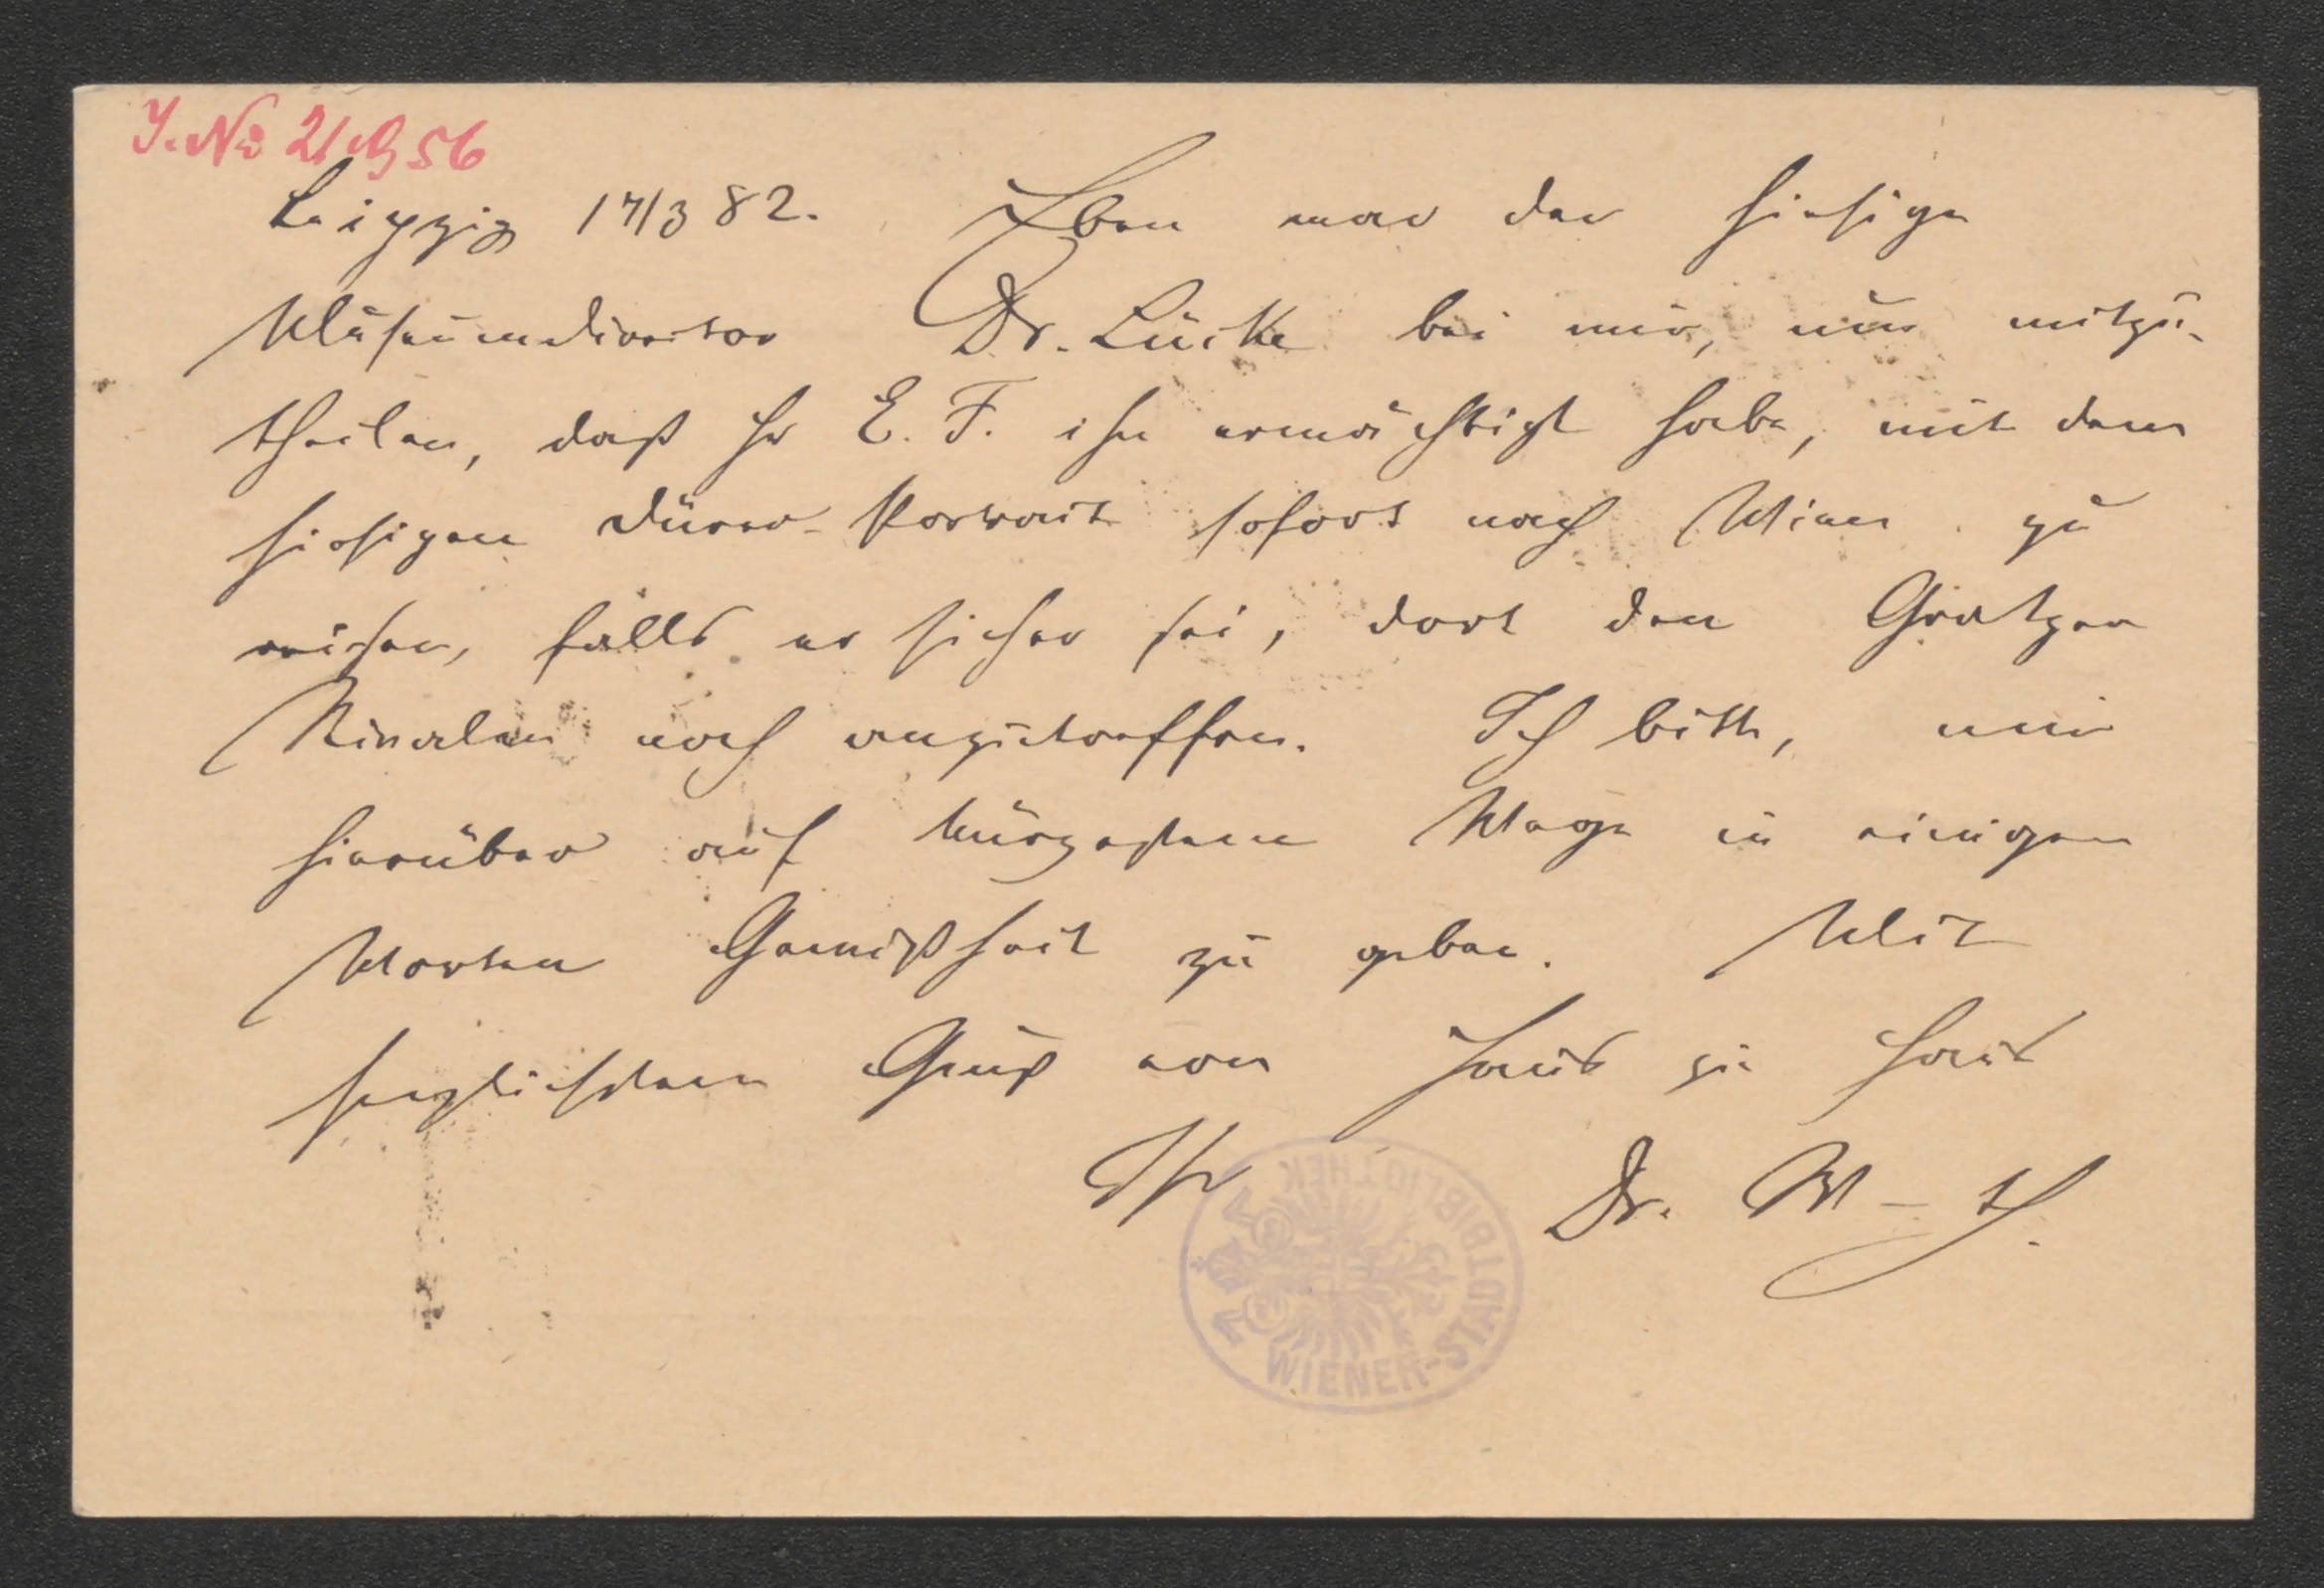 J. No 21056
Leipzig 17/3 82. Eben war der hiesige
Museumdirector Dr. Lücke bei mir, um mitzu-
theilen, daß Hr E. F. ihn ermächtigt habe, mit dem
hiesigen Dürer-Portrait sofort nach Wien zu
reisen, falls er sicher sei, dort den Gratzer
Rivalen noch anzutreffen. Ich bitte, mir
hierüber auf kürzestem Wege in einigen
Worten Gewißheit zu geben. Mit
herzlichstem Gruß von Haus zu Haus
Ihr Dr. W – th.
WIENER-STADTBIBLIOTHEK